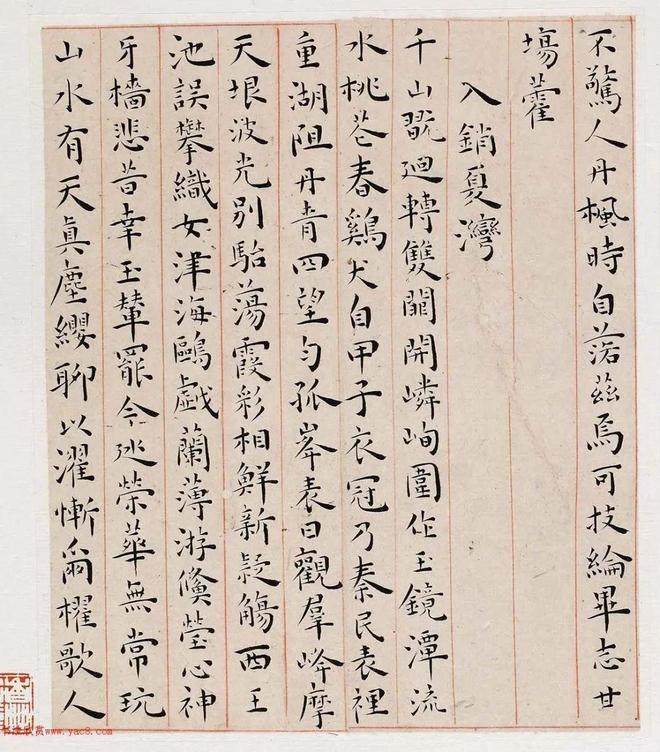 不驚人丹楓時自落茲焉可投綸畢志甘
場藿
入銷夏灣
千山翫迴轉雙關開嶙峋圍作玉鏡潭流
水桃花春鷄犬自甲子衣冠乃秦民表裡
重湖阻丹青四望勻孤峯表日觀羣峰摩
天垠波光別駘蕩霞彩相鮮新疑觴西王
池誤攀織女津海鷗戲蘭薄游鯈瑩心神
牙檣悲昔幸玉輦罷今巡榮華無常玩
山水有天眞塵纓聊以濯慚爾櫂歌人
书法欣赏www.yac8.com